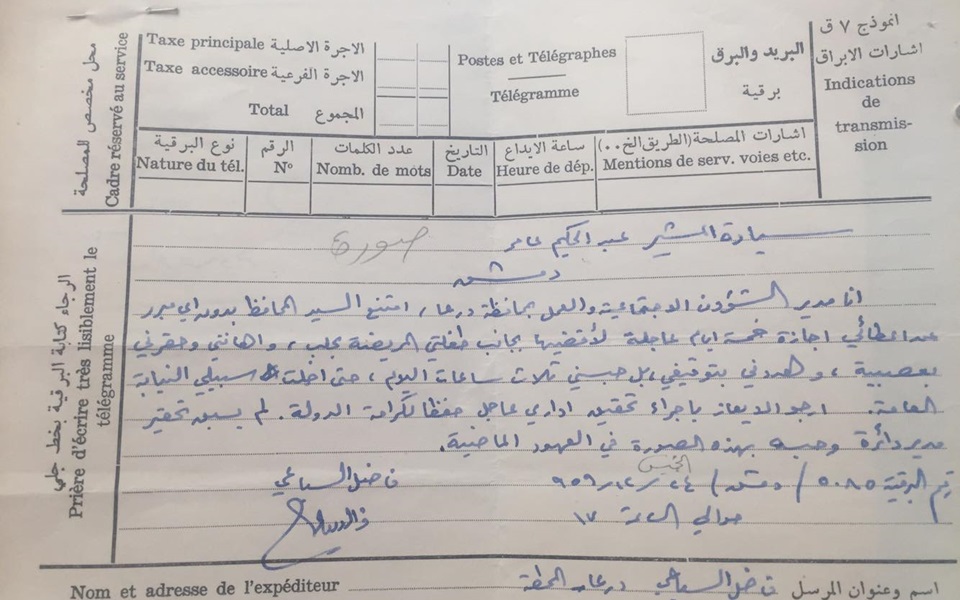 انموذج ٧ ق
اشارات الابراق
Indications
de
transmis-
sion
البريد والبرق
برقية
Postes et Télégraphes
Télégramme
Taxe principale الاجرة الاصلية
Taxe accessoire الاجرة الفرعية
Total المجموع
محل مخصص للمصلحة
Cadre réservé au service
اشارات المصلحة (الطريق الخ ٠٠)
Mentions de serv. voies etc.
ساعة الايداع
Heure de dép.
التاريخ
Date
عدد الكلمات
Nomb. de mots
الرقم
Nº
نوع البرقية
Nature du tél.
الرجاء كتابة البرقية بخط جلي
Prière d'écrire très lisiblement le
télégramme
صورة
سيادة المشير عبد الحكيم عامر
دمشق
انا مدير الشؤون الاجتماعية والعمل بمحافظة درعا، امتنع السيد المحافظ بدون اي مبرر
عن اعطائي اجازة خمسة ايام عاجلة لأقضيها بجانب طفلتي المريضة بحلب، واهانني وحقرني
بعصبية، وهددني بتوقيفي، بل حبسني ثلاث ساعات اليوم، حتى اخلت سبيلي النيابة
العامة. ارجو الايعاز باجراء تحقيق اداري عاجل حفظا لكرامة الدولة. لم يسبق تحقير
مدير دائرة وحبسه بهذه الصورة في العهود الماضية.
رقم البرقية ٥٠٨٥ / دمشق / الخميس ٢٤/١٢/٩٥٩
فاضل السباعي
حوالي الساعة ١٧
Nom et adresse de l'expéditeur
اسم وعنوان المرسل فاضل السباعي درعا المحطة